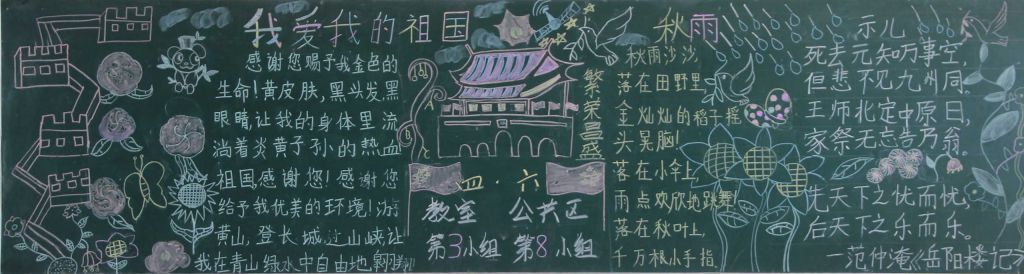 我爱我的祖国
感谢您赐予我金色的
生命!黄皮肤,黑头发黑
眼睛,让我的身体里流
淌着炎黄子孙的热血
祖国,感谢您!感谢您
给予我优美的环境!游
黄山,登长城,过山峡让
我在青山绿水中自由地翱翔!
繁荣昌盛
四·六
教室 公共区
第3小组 第8小组
秋雨
秋雨沙沙
落在田野里
金灿灿的稻子摇
头晃脑!
落在小伞上
雨点欢欣地跳舞
落在秋叶上,
千万根小手指
示儿
死去元知万事空,
但悲不见九州同。
王师北定中原日,
家祭无忘告乃翁。
先天下之忧而忧,
后天下之乐而乐。
—范仲淹《岳阳楼记》